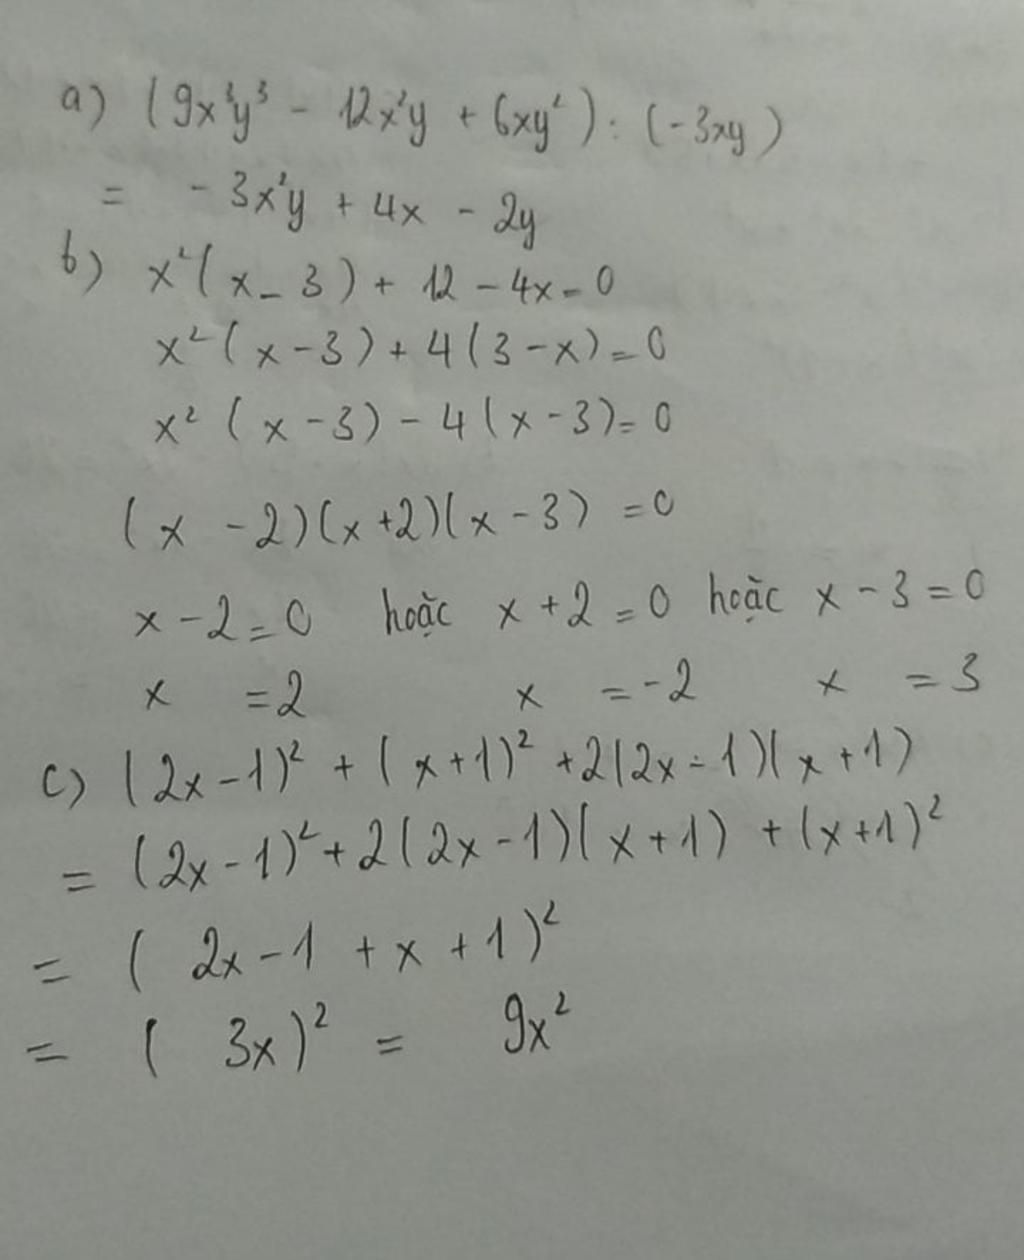 a) (9x³y³ - 12x²y + 6xy²) : (-3xy)
= -3x²y + 4x - 2y
b) x²(x - 3) + 12 - 4x = 0
x²(x - 3) + 4(3 - x) = 0
x² (x - 3) - 4(x - 3) = 0
(x - 2)(x + 2)(x - 3) = 0
x - 2 = 0 hoặc x + 2 = 0 hoặc x - 3 = 0
x = 2 x = -2 x = 3
c) (2x - 1)² + (x + 1)² + 2(2x - 1)(x + 1)
= (2x - 1)² + 2(2x - 1)(x + 1) + (x + 1)²
= (2x - 1 + x + 1)²
= (3x)² = 9x²